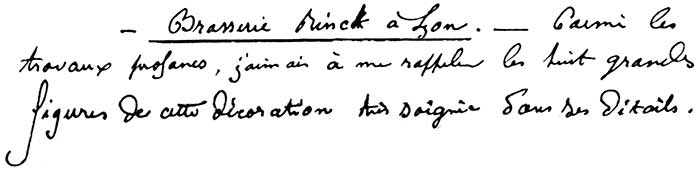 — Brasserie Rinck à Lyon. — Parmi les
travaux profanes, j'aimais à me rappeler les huit grandes
figures de cette décoration très soignée dans ses détails.